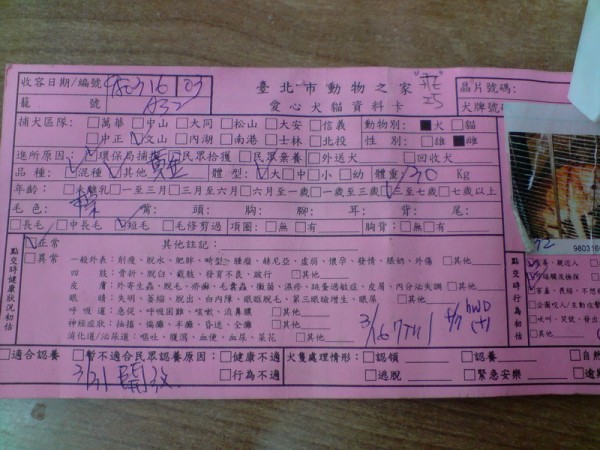 收容日期/編號 980316 03
臺北市動物之家
晶片號碼:
籠 號 A32
愛心犬貓資料卡
犬牌號碼
捕犬區隊: □萬華 □中山 □大同 □松山 □大安 □信義
動物別: ■犬 □貓
□中正 □文山 □內湖 □南港 □士林 □北投
性 別: □雄 ■雌
進所原因: □環保局捕捉 □民眾拾獲 □民眾棄養 □外送犬 □回收犬
品種: □混種 □其他 體型: □大□中□小□幼 體重 30 Kg
年齡: □未離乳 □一至三月 □三月至六月 □六月至一歲 □一歲至三歲 □三至七歲 □七歲以上
毛色: 棕 嘴: 頭: 胸: 腳: 耳: 背: 尾:
□長毛 □中長毛 □短毛 □毛修剪過 項圈: □無 □有 胸背: □無□有
980316
點交時健康狀況初估
□正常 其他註記:
□異常 一般外表: 削瘦、脫水、肥胖、畸型、腫瘤、赫尼亞、虛弱、懷孕、發情、脹奶、外傷 □其他
四 肢: 骨折、脫臼、截肢、發育不良、跛行 □其他
皮 膚: 外寄生蟲、脫毛、疥癬、毛囊蟲、黴菌、濕疹、跳蚤過敏症、皮屑、內分泌失調 □其他
眼 睛: 失明、萎縮、脫出、白內障、眼瞼脫毛、第三眼瞼增生、眼屎 □其他
呼吸道: 急促、呼吸困難、咳嗽、流鼻膿 □其他
神經症狀: 抽搐、偏癱、半癱、昏迷、全癱 □其他
消化道/泌尿道: 嘔吐、腹瀉、血便、血尿、菜花 □其他
HWD
(+)
點交時行為初估
□適合認養 □暫不適合民眾認養原因: □健康不適 犬隻處理情形: □認領 □認養
3/31 開放
□行為不適 □逃脫 □緊急安樂